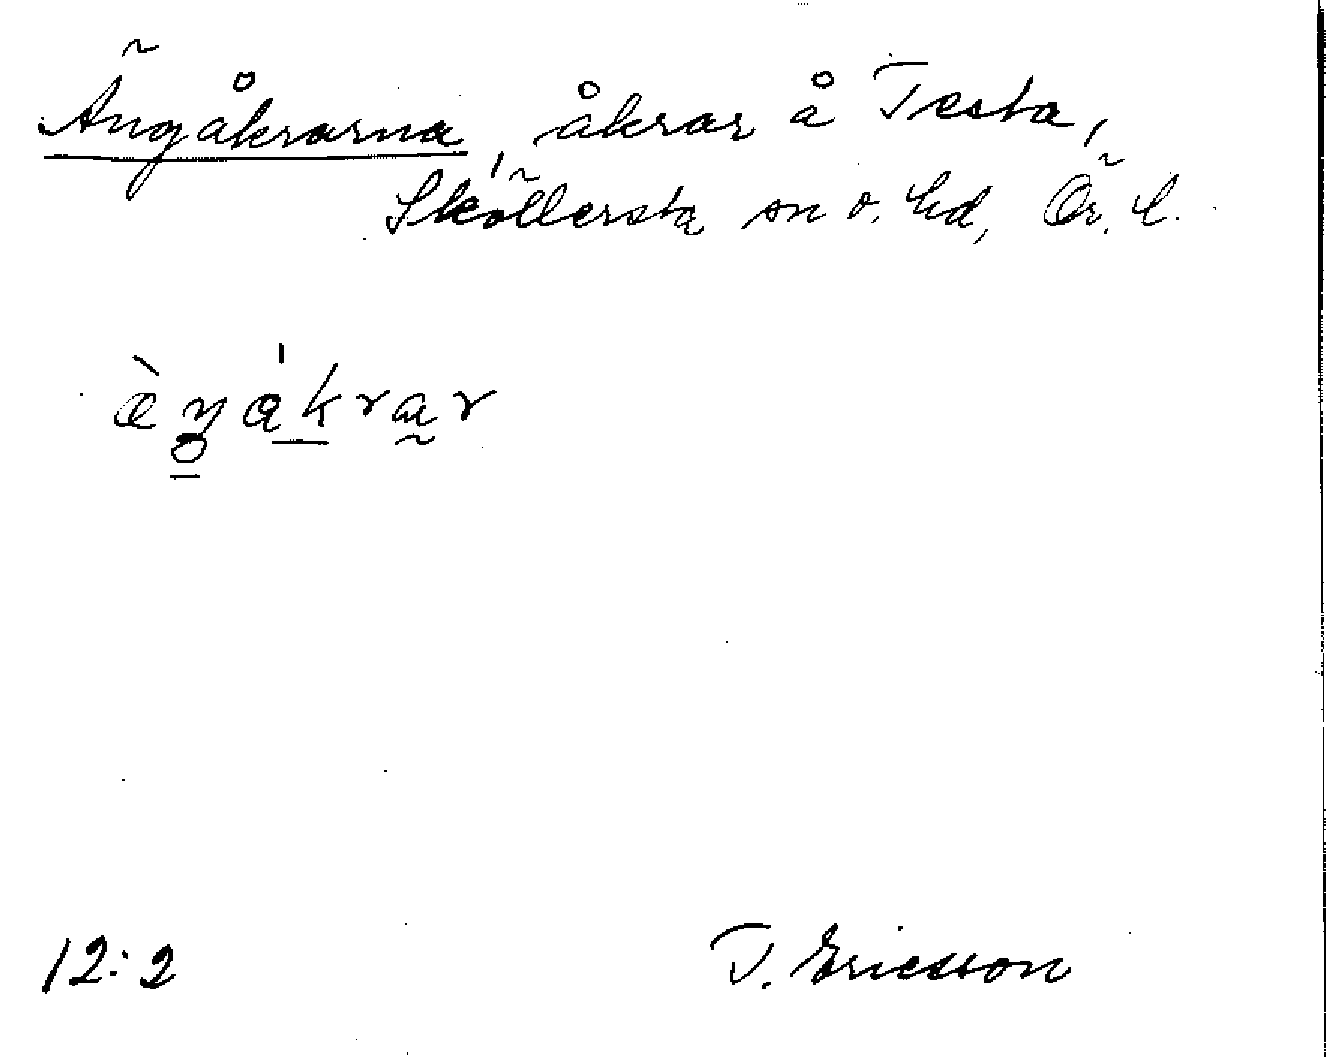 Ängåkrarna, åkrar å Testa,
Sköllersta sn o. hd, Ör. l.
12:2 T. Ericsson